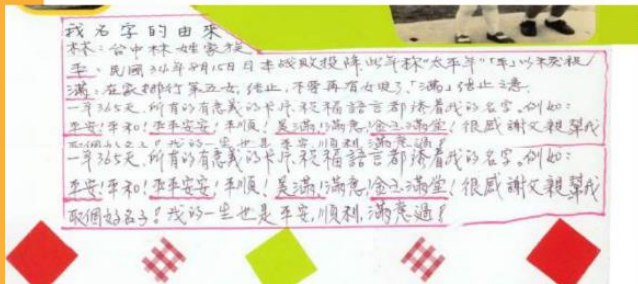 我名字的由來
林：台中林姓家族
平：民國34年8月15日日本戰敗投降，此年稱"太平年""平"以來表祝
滿：在家排行第五女，终止，不要再有女娃了，「滿」终止之意。
一年365天，所有的有意義的卡片，祝福語言都接着我的名字，例如：
平安！平和！平平安安！平順！美滿！滿意！金玉滿堂！很感謝父親幫我
取個好名字！我的一生也是平安，順利，滿意過！
一年365天，所有的有意義的卡片，祝福語言都接着我的名字，例如：
平安！平和！平平安安！平順！美滿！滿意！金玉滿堂！很感謝父親幫我
取個好名字！我的一生也是平安，順利，滿意過！